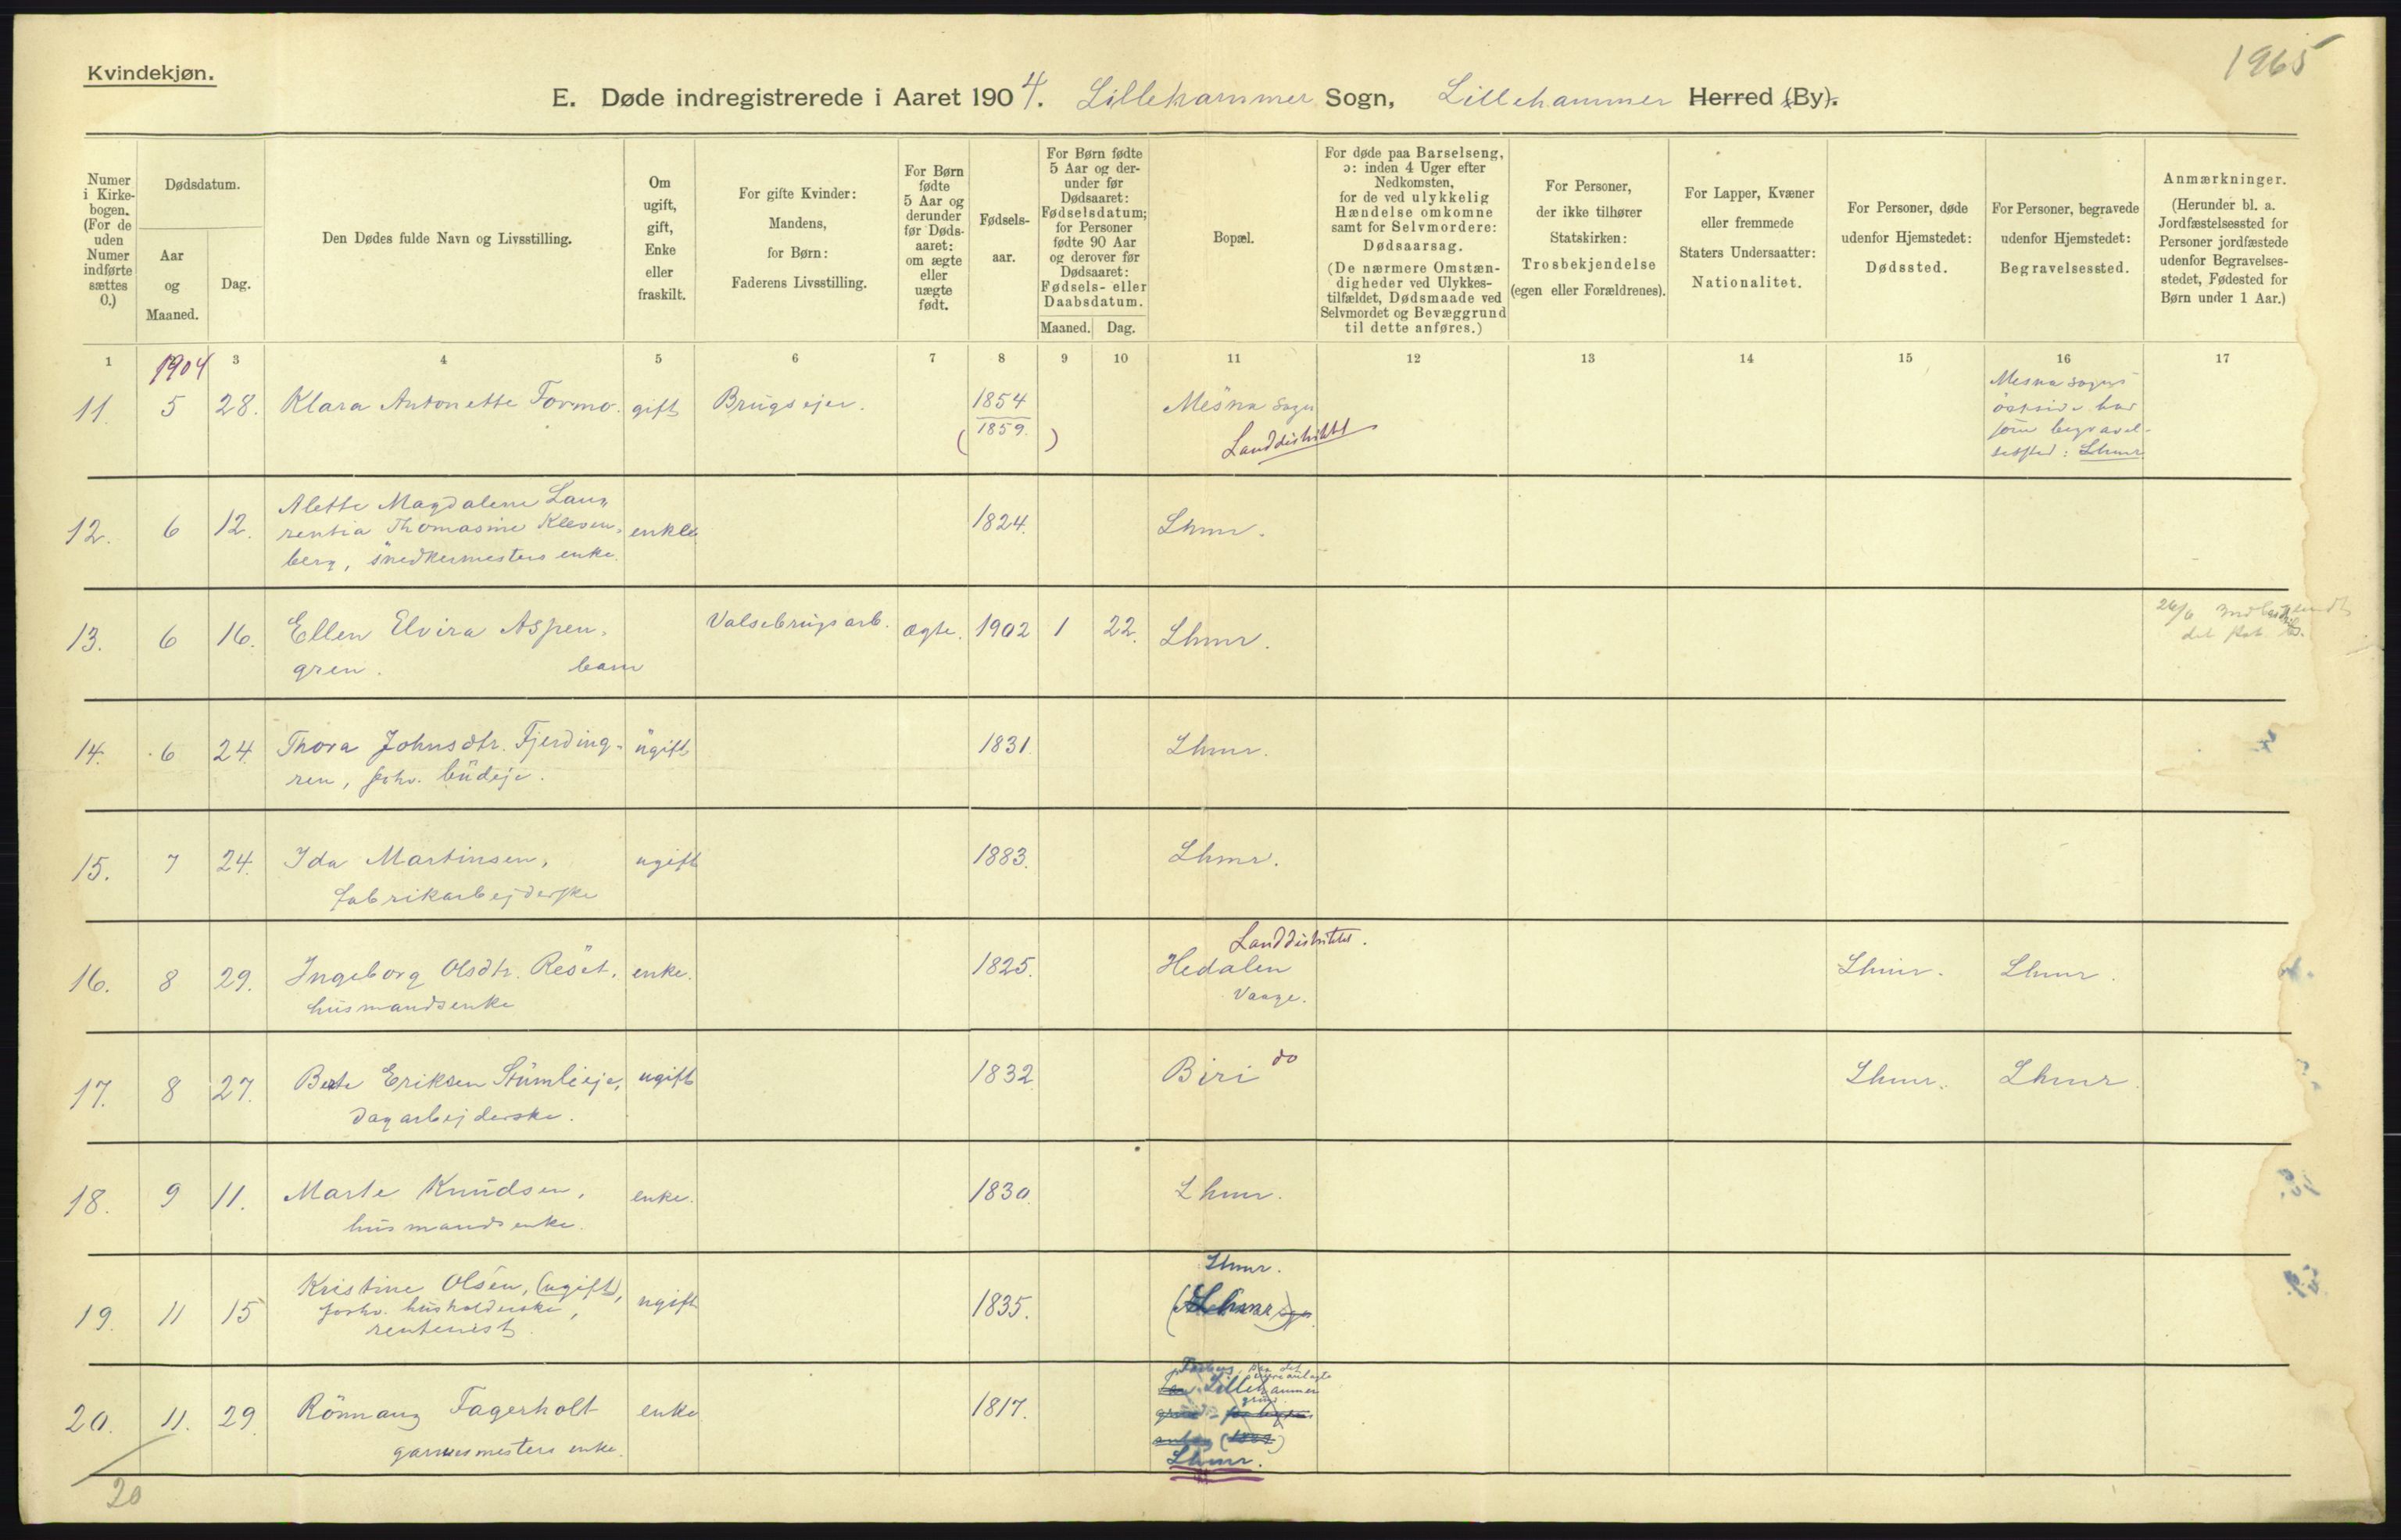 1965
Kvindekjøn.
E. Døde indregistrerede i Aaret 1904. Lillehammer Sogn, Lillehammer Herred (By).
Numer i Kirkebogen. (For de uden Numer indførte sættes 0.)
Dødsdatum.
Aar og Maaned.
Dag.
Den Dødes fulde Navn og Livsstilling.
Om ugift, gift, Enke eller fraskilt.
For gifte Kvinder: Mandens, for Børn: Faderens Livsstilling.
For Børn fødte 5 Aar og derunder før Dødsaaret: om ægte eller uægte født.
Fødselsaar.
For Børn fødte 5 Aar og derunder før Dødsaaret: Fødselsdatum; for Personer fødte 90 Aar og derover før Dødsaaret: Fødsels- eller Daabsdatum.
Maaned. Dag.
Bopæl.
For døde paa Barselseng, ɔ: inden 4 Uger efter Nedkomsten, for de ved ulykkelig Hændelse omkomne samt for Selvmordere: Dødsaarsag.
(De nærmere Omstændigheder ved Ulykkestilfældet, Dødsmaade ved Selvmordet og Bevæggrund til dette anføres.)
For Personer, der ikke tilhører Statskirken: Trosbekjendelse (egen eller Forældrenes).
For Lapper, Kvæner eller fremmede Staters Undersaatter: Nationalitet.
For Personer, døde udenfor Hjemstedet: Dødssted.
For Personer, begravede udenfor Hjemstedet: Begravelsessted.
Anmærkninger. (Herunder bl. a. Jordfæstelsessted for Personer jordfæstede udenfor Begravelsesstedet, Fødested for Børn under 1 Aar.)
1 3 4 5 6 7 8 9 10 11 12 13 14 15 16 17
1904
11. 5 28. Klara Antonette Formo. gift Brugsejer. 1854 (1859.) Mesna sogn Landdistriktet Mesna sogns
som begravelsessted: Lhmr.
12. 6 12. Alette Magdalene Laurentia Thomasine Klevenberg, snedkermesters enke. enke 1824. Lhmr.
13. 6 16. Ellen Elvira Aspengren. barn Valsebrugsarb. ægte. 1902 1 22. Lhmr.
14. 6 24. Thora Johnsdtr. Fjerdingren, forhv. budeje. ugift 1831. Lhmr.
15. 7 24. Ida Martinsen, fabrikarbejderske ugift 1883. Lhmr.
16. 8 29. Ingeborg Olsdtr. Resæt, husmandsenke enke. 1825. Landdistriktet. Hedalen Vaage. Lhmr. Lhmr.
17. 8 27. Berte Eriksen Stumlieje, dagarbejderske. ugift 1832. Biri do Lhmr. Lhmr.
18. 9 11. Marte Knudsen, husmandsenke. enke. 1830. Lhmr.
19. 11 15 Kristine Olsen, (ugift), forhv. husholderske, rentenist. ugift 1835. Lhmr.
20. 11. 29. Rönnaug Fagerholt garvermesters enke. enke 1817. Lillehammer
Lhmr.
20